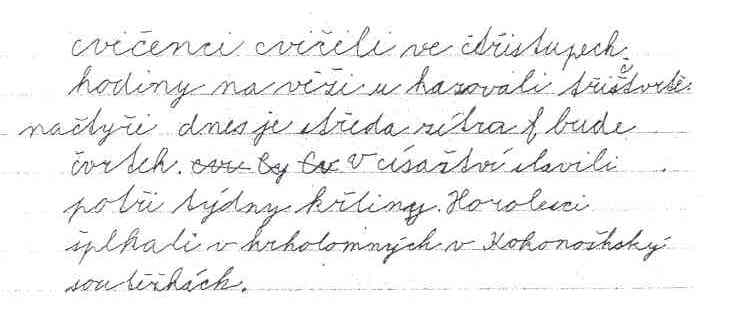 cvičenci cvičili ve čtřistupech
hodiny na věži u hazovali třištvrtě
načtyři dnes je středa zítra bude
čvrteh. V císařtví slavili
potři týdny křtiny. Horolesci
šplhali v krholomných v Kohonošhský
soutěžhách.